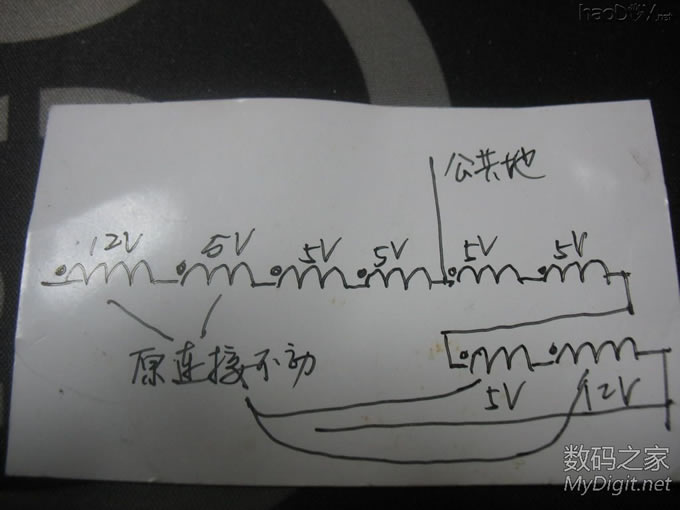 haoDIY.net
公共地
12V 5V 5V 5V 5V 5V
原连接不动
5V 12V
数码之家
MyDigit.net